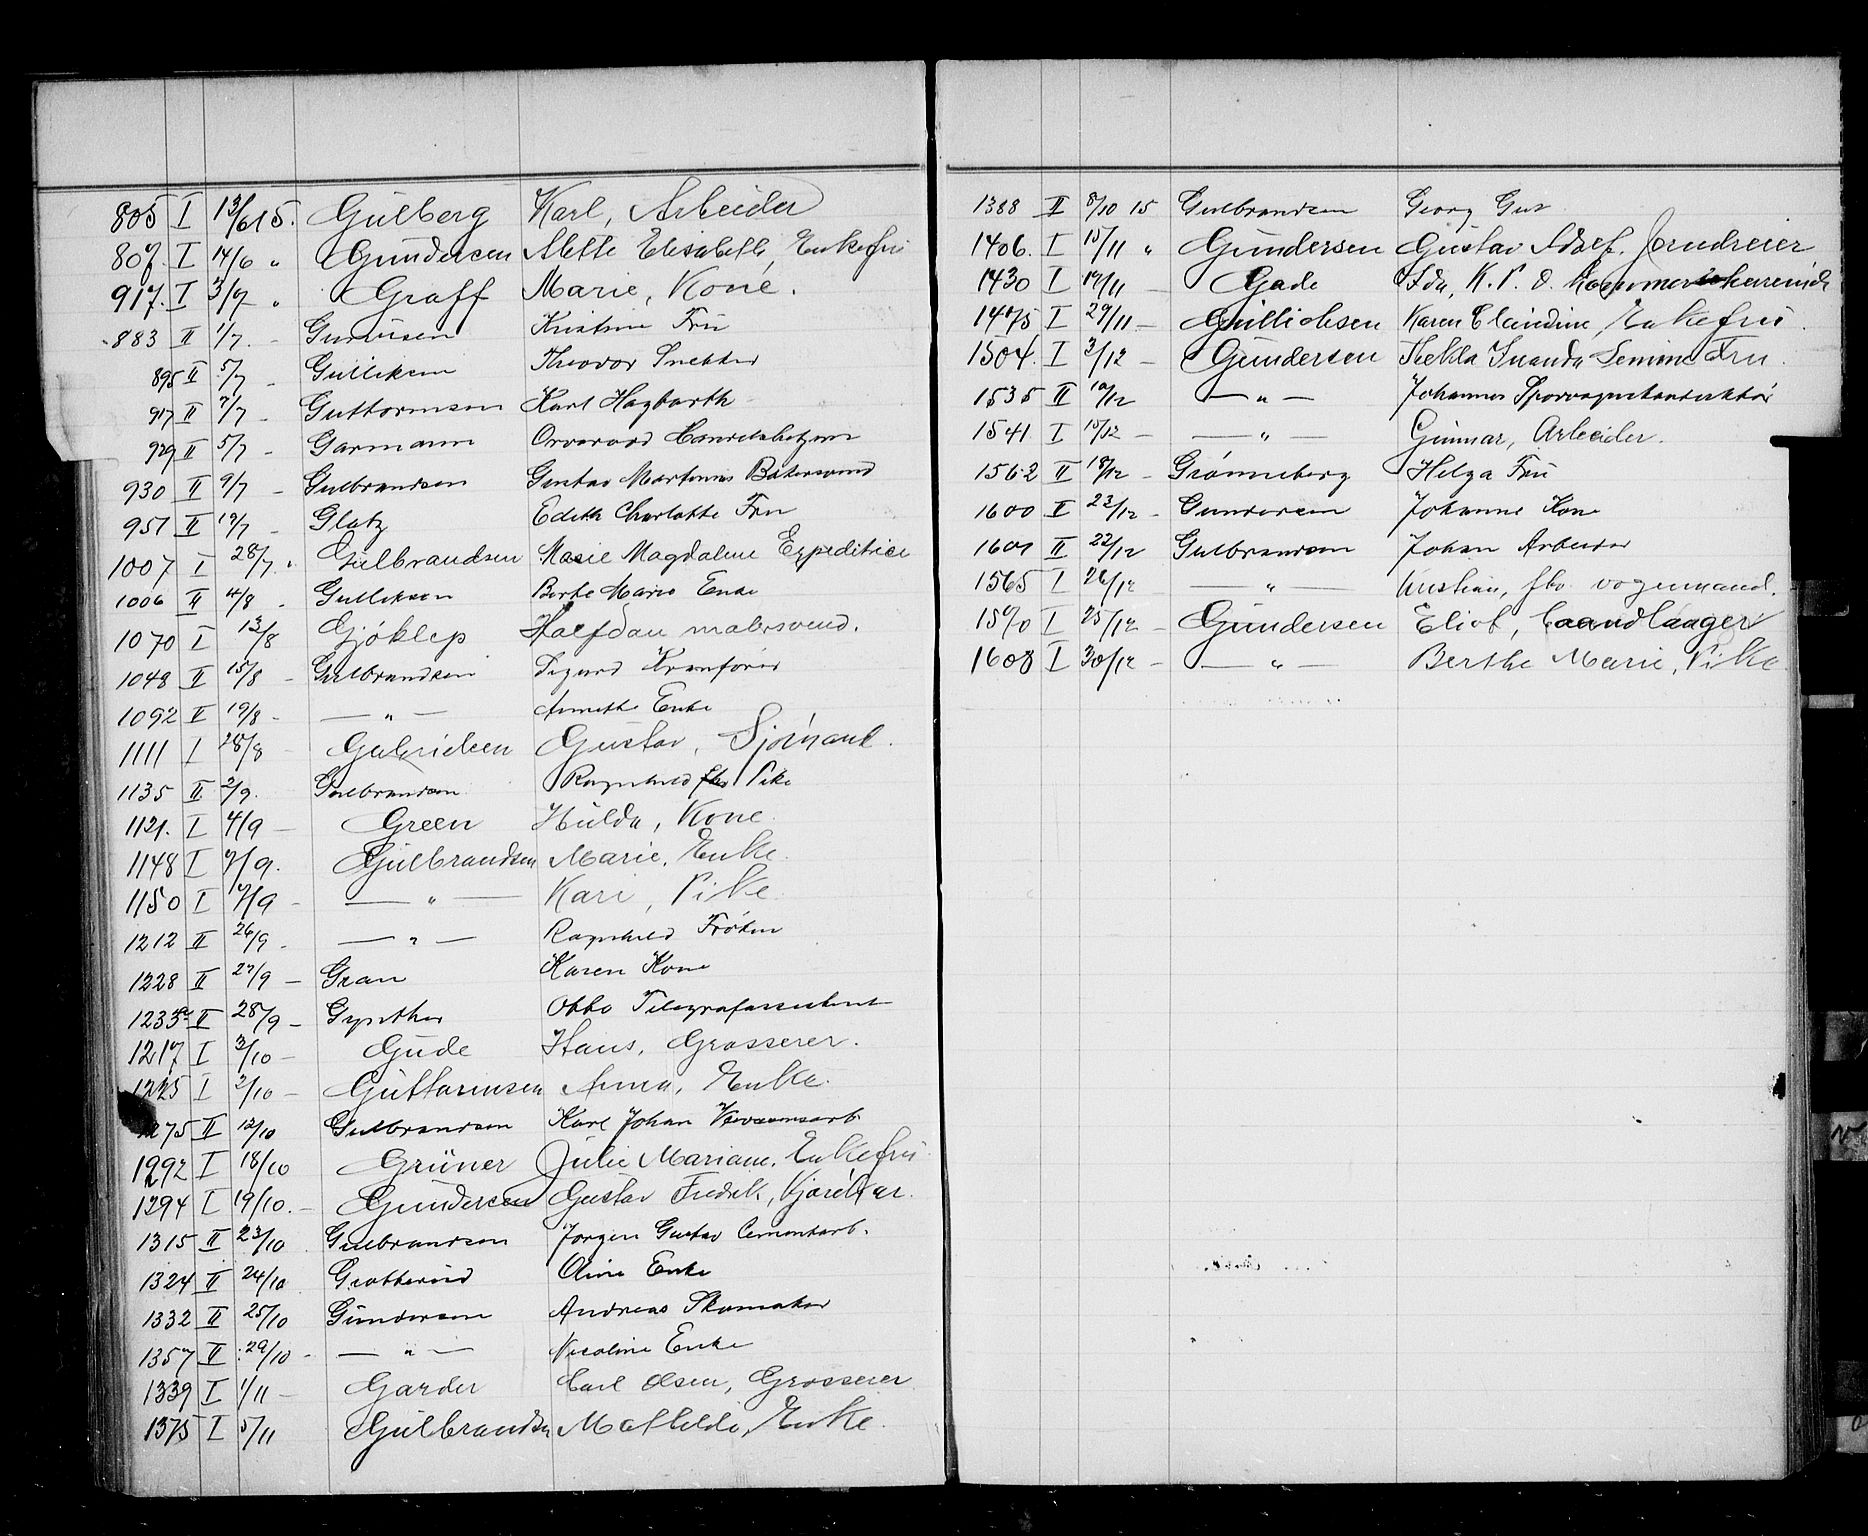 805 I 13/6 15. Gulberg Karl, Arbeider
807. I 14/6 " Gundersen Mette Elisabeth, Enkefru
917. I 3/7 " Graff Marie, Kone.
883 II 1/7. - Kristine Fru
895 II 5/7 - Gulliksen Theodor Snekker
917 II 7/7 - Guttormsen Karl Hagbarth
929 II 5/7 - Garmann
930 II 9/7 - Gulbrandsen Gustav Martinius Bakersvend
951 II 19/7 - Glatz Edith Charlotte Fru
1007 I 28/7. " Gulbrandsen Marie Magdalene Expeditrice
1006 II 4/8 - Gulliksen Berte Marie Enke
1070 I 13/8 Gjøklep Halfdan malersvend.
1048 II 15/8 - Gulbrandsen Sigurd Kranfører
1092 II 19/8 - — " — Annette Enke
1111 I 28/8 - Gabrielsen Gustav, Sjømand.
1135 II 2/9. Gulbrandsen Ragnhild fhv Pike
1121. I 4/9 — Green Hulda, Kone.
1148 I 7/9. Gulbrandsen Marie, Enke.
1150 I 7/9 - — " — Kari, Pike.
1212 II 26/9 - — " — Ragnhild Frøken
1228 II 27/9 — Gran Karen Kone
1233 II 28/9 - Gynther Otto Telegrafassistent
1217 I 3/10 - Gude Hans, Grosserer.
1225 I 2/10 - Guttormsen Anna, Enke.
1275 II 12/10 Gulbrandsen Karl Johan
1292 I 18/10 Grüner Julie Mariane, Enkefru
1294 I 19/10. - Gundersen Gustav Fredrik,
1315 II 23/10 Gulbrandsen Jørgen Gustav Cementarb.
1324 II 24/10 Grøtterød Oline Enke
1332 II 25/10 Gundersen Andreas Skomaker
1357 II 29/10 - — " — Nicoline Enke
1339 I 1/11 - Garder Carl Olsen, Grosserer
1375 I 5/11 Gulbrandsen Mathilde, Enke.
1388 II 8/10 15 Gulbrandsen Georg Gut
1406. I 15/11 " Gundersen Gustav Adolf,
1430 I 17/11 - Gade Ida, K. P. O.
1475 I 29/11 - Gullichsen Karen Claudine, Enkefru.
1504. I 3/12 - Gundersen Thekla Fru.
1535 II 10/12 — " — Johannes Sporvognskonduktør
1541 I 15/12 - — " — Gunnar, Arbeider.
1562 II 18/12 - Grønneberg Helga Fru
1600 II 23/12 - Gundersen Johanne Kone
1601 II 22/12 Gulbrandsen Johan Arbeider
1565 I 26/12 — " — Kristian, fhv. vognmand.
1570 I 25/12 - Gundersen Eliot,
1608 I 30/12 - — " — Berthe Marie, Pike